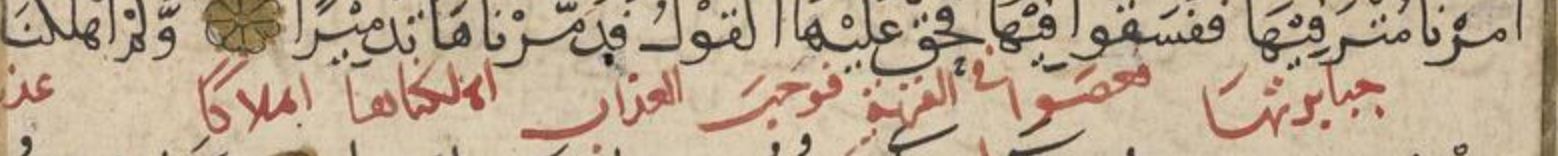 امرنا مترفيها ففسقوا فيها فحق عليها القول فدمرناها تدميرا وكم اهلكنا
جبابرتها فعصوا في القرية فوجب العذاب اهلكناها اهلاكا